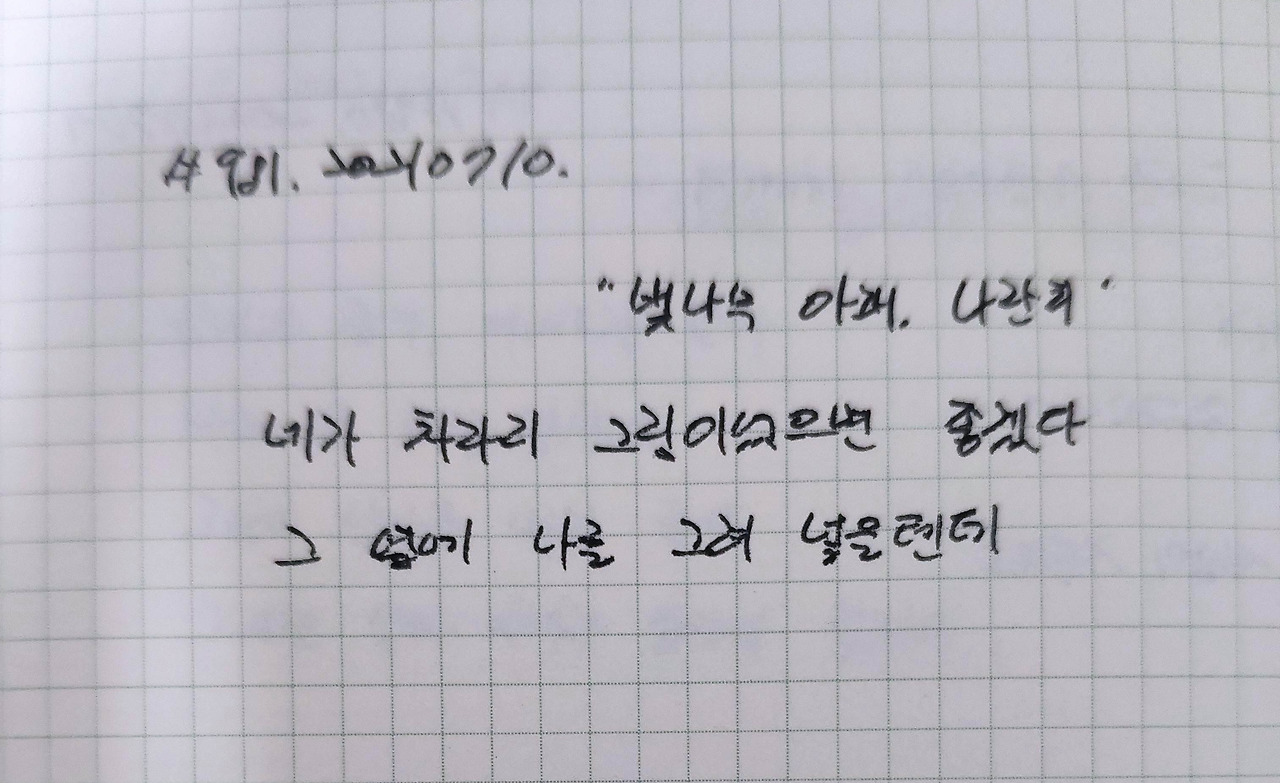 #981. 20240710.
"벚나무 아래, 나란히"
네가 차라리 그림이었으면 좋겠다
그 옆에 나를 그려 넣을텐데